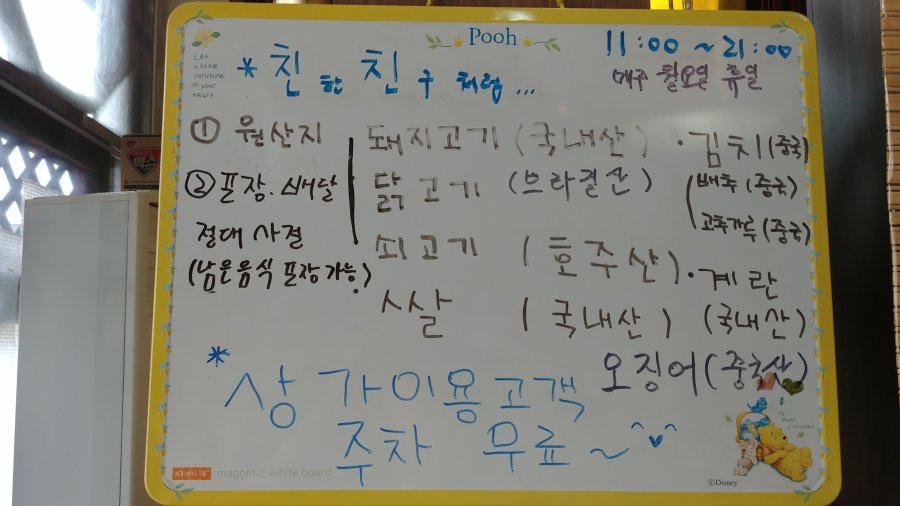 Pooh
11:00 ~ 21:00
매주 월요일 휴일
Let
a little
sunshine
in your
heart.
* 친한 친구 처럼...
① 원산지
돼지고기 (국내산)
닭고기 (브라질산)
쇠고기 (호주산)
쌀 (국내산)
· 김치 (중국)
배추 (중국)
고추가루 (중국)
· 계란
(국내산)
오징어 (중국산)
② 포장. 배달
절대 사절
(남은음식 포장가능)
* 상가이용고객
주차 무료~^♥^
맥스
magnetic white board
©Disney